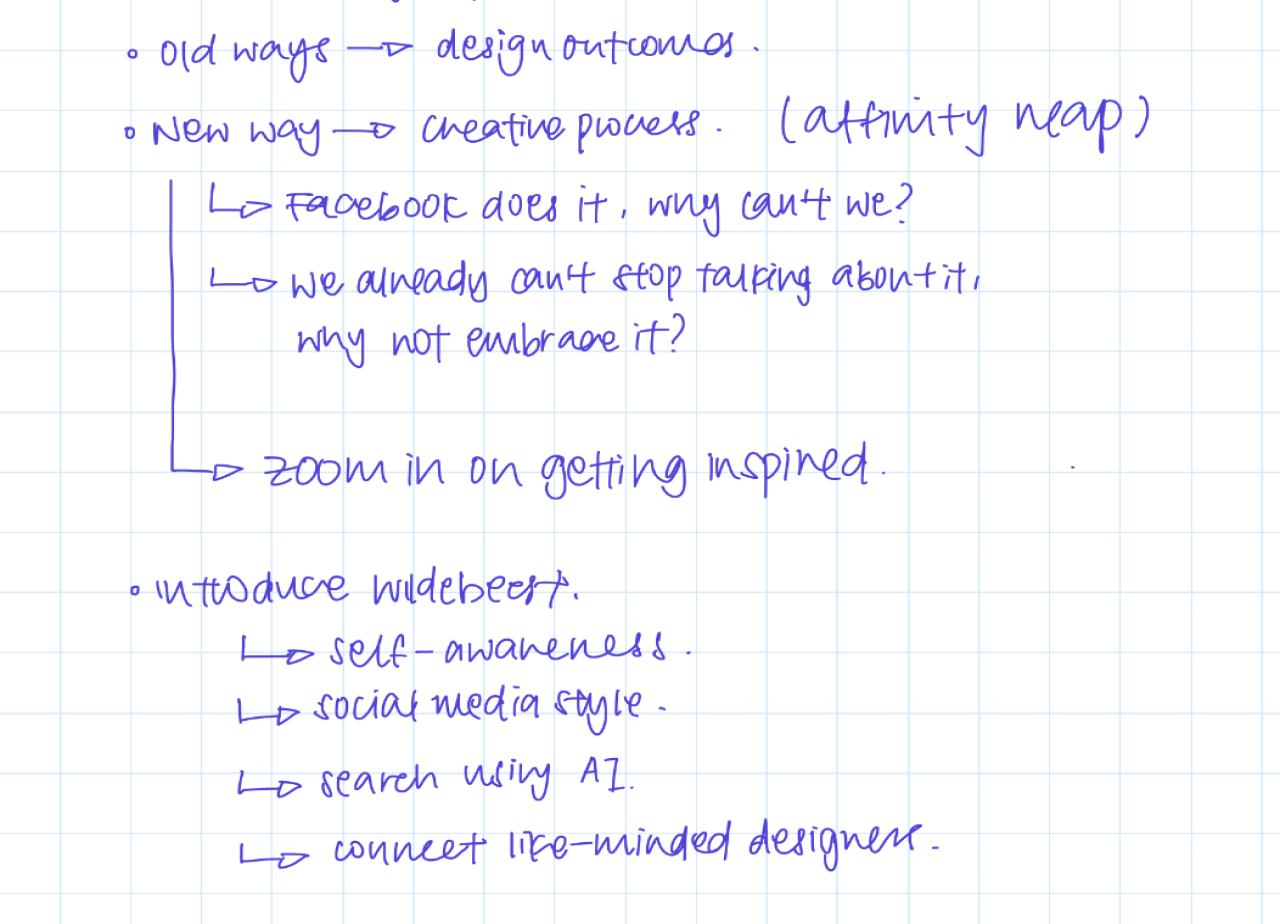 • old ways → design outcomes.
• New way → creative process. (affinity map)
↳ Facebook does it, why can't we?
↳ we already can't stop talking about it,
why not embrace it?
↳ zoom in on getting inspired.
• introduce wildebeest.
↳ self-awareness.
↳ social media style.
↳ search using AI.
↳ connect like-minded designers.